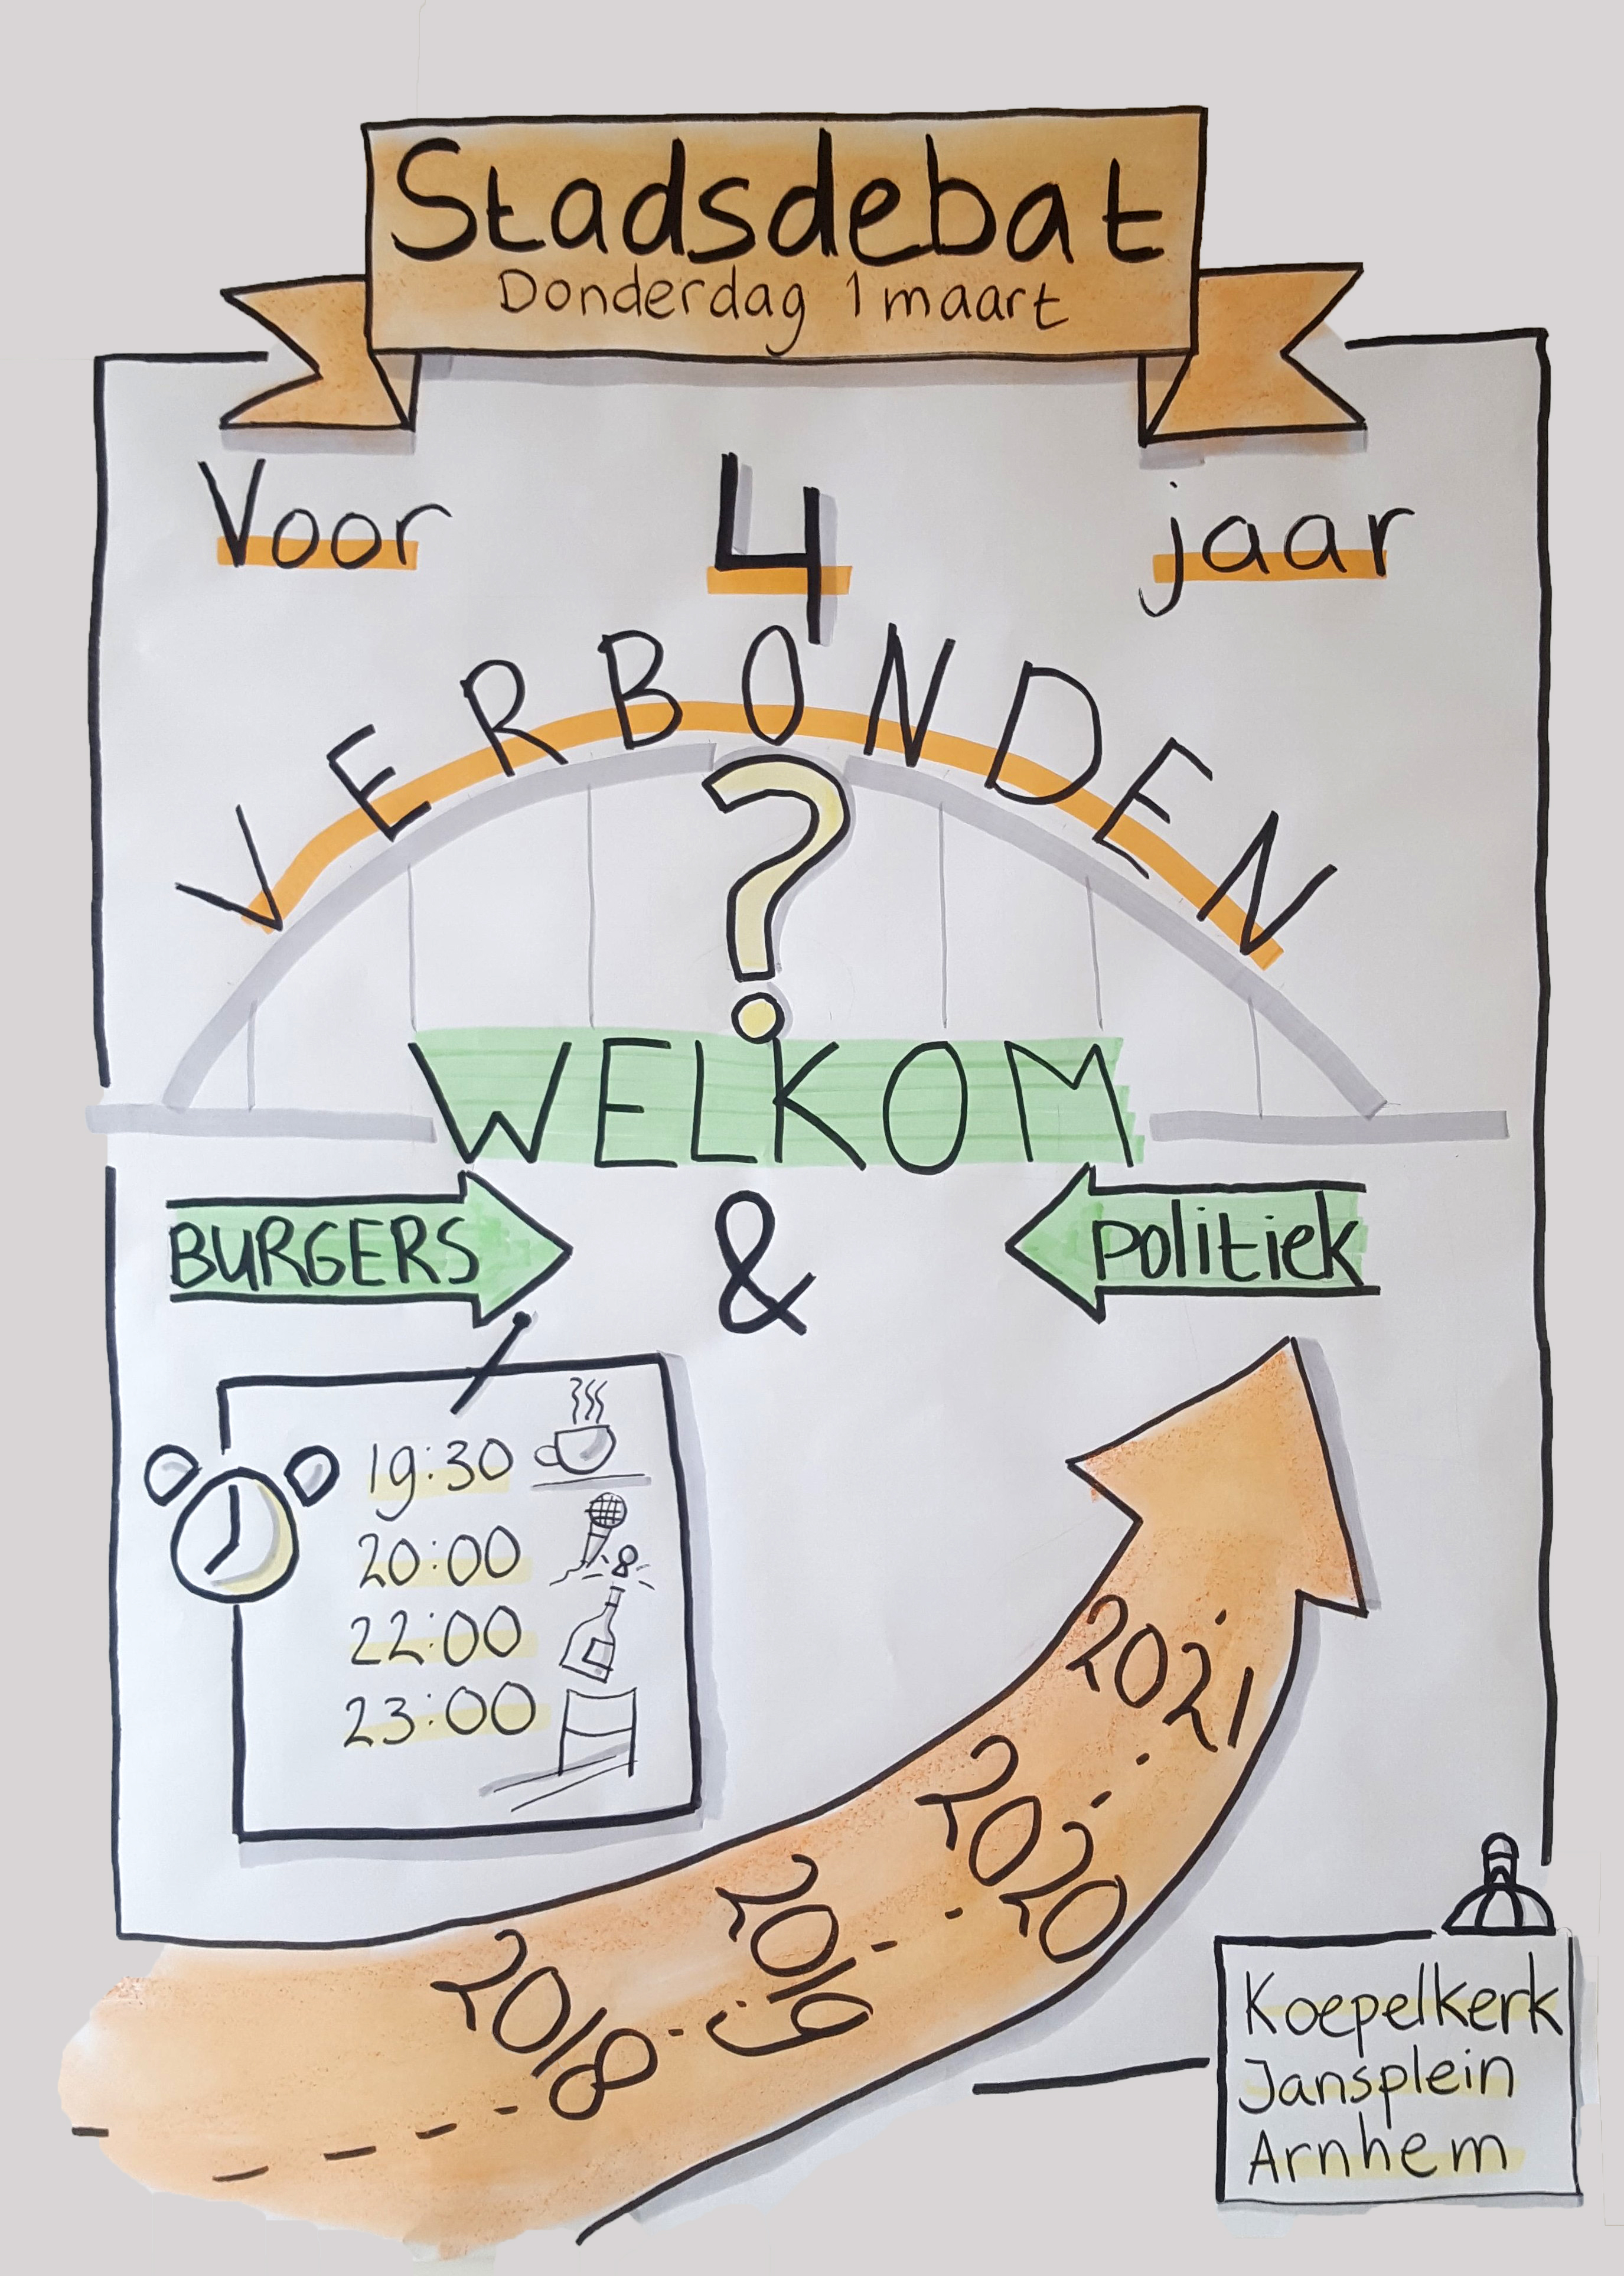 Stadsdebat
Donderdag 1 maart
Voor 4 jaar
VERBONDEN
?
WELKOM
BURGERS & politiek
19:30
20:00
22:00
23:00
2018
2019
2020
2021
Koepelkerk
Jansplein
Arnhem